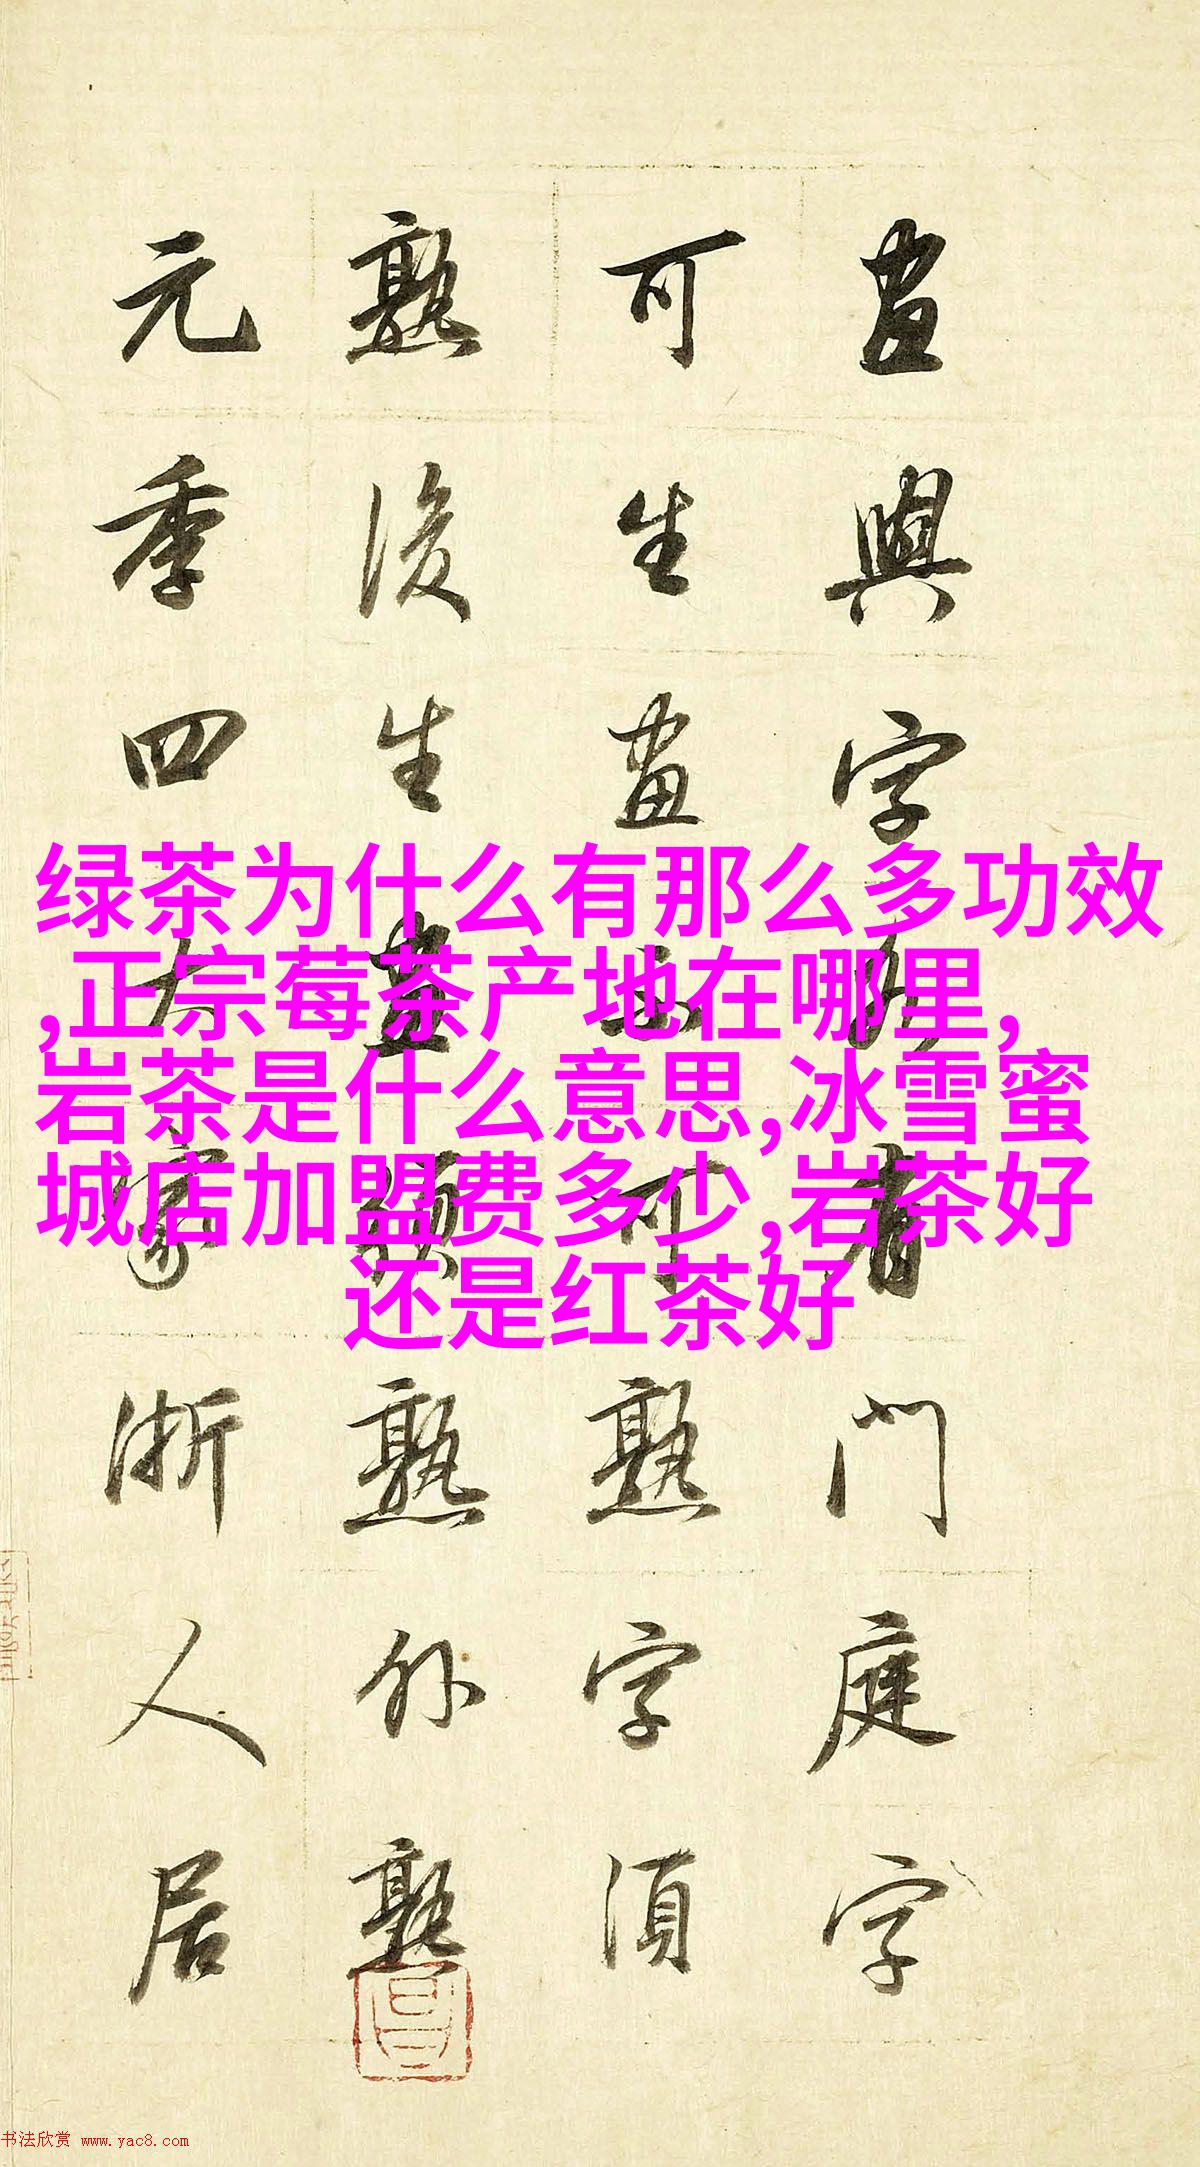 畫與字各有門庭字
可生畫不可熟字須
熟後生畫須熟外熟
元季四大家浙人居
绿茶为什么有那么多功效
,正宗莓茶产地在哪里,
岩茶是什么意思,冰雪蜜
城店加盟费多少,岩茶好
还是红茶好
书法欣赏 www.yac8.com